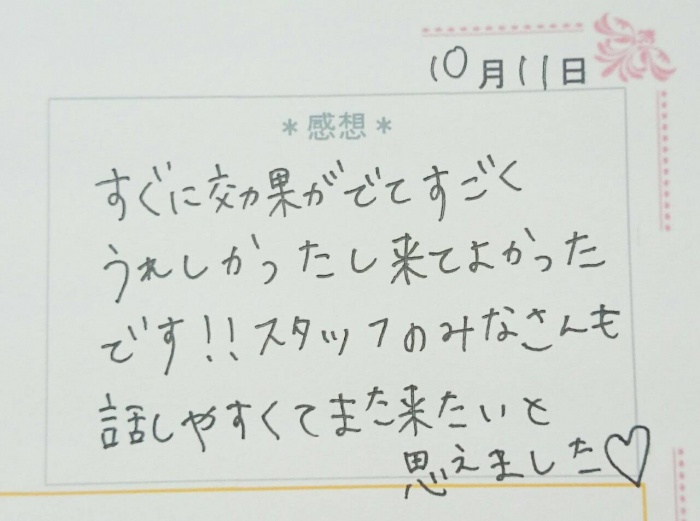 10月11日
*感想*
すぐに効果がでてすごく
うれしかったし来てよかった
です!!スタッフのみなさんも
話しやすくてまた来たいと
思えました♡